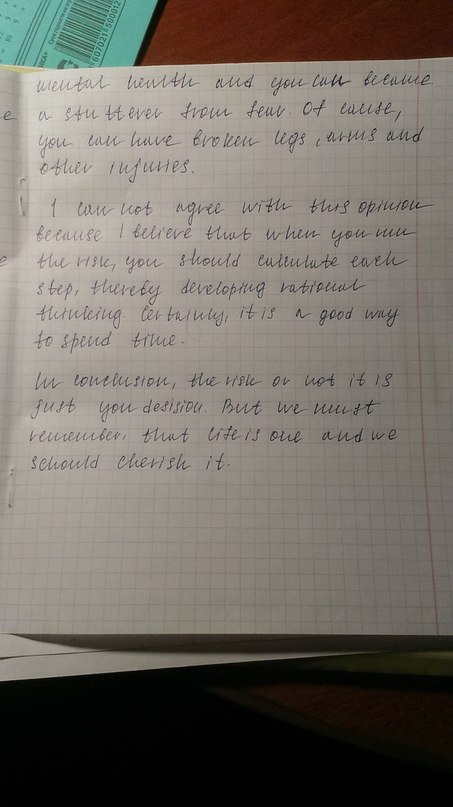 6070211500012
mental health and you can became
a stutterer from fear. Of cause,
you can have broken legs, arms and
other injuries.
I can not agree with this opinion
because I believe that when you run
the risk, you should calculate each
step, thereby developing rational
thinking. Certainly, it is a good way
to spend time.
In conclusion, the risk or not it is
just you desision. But we must
remember, that life is one and we
schould cherish it.